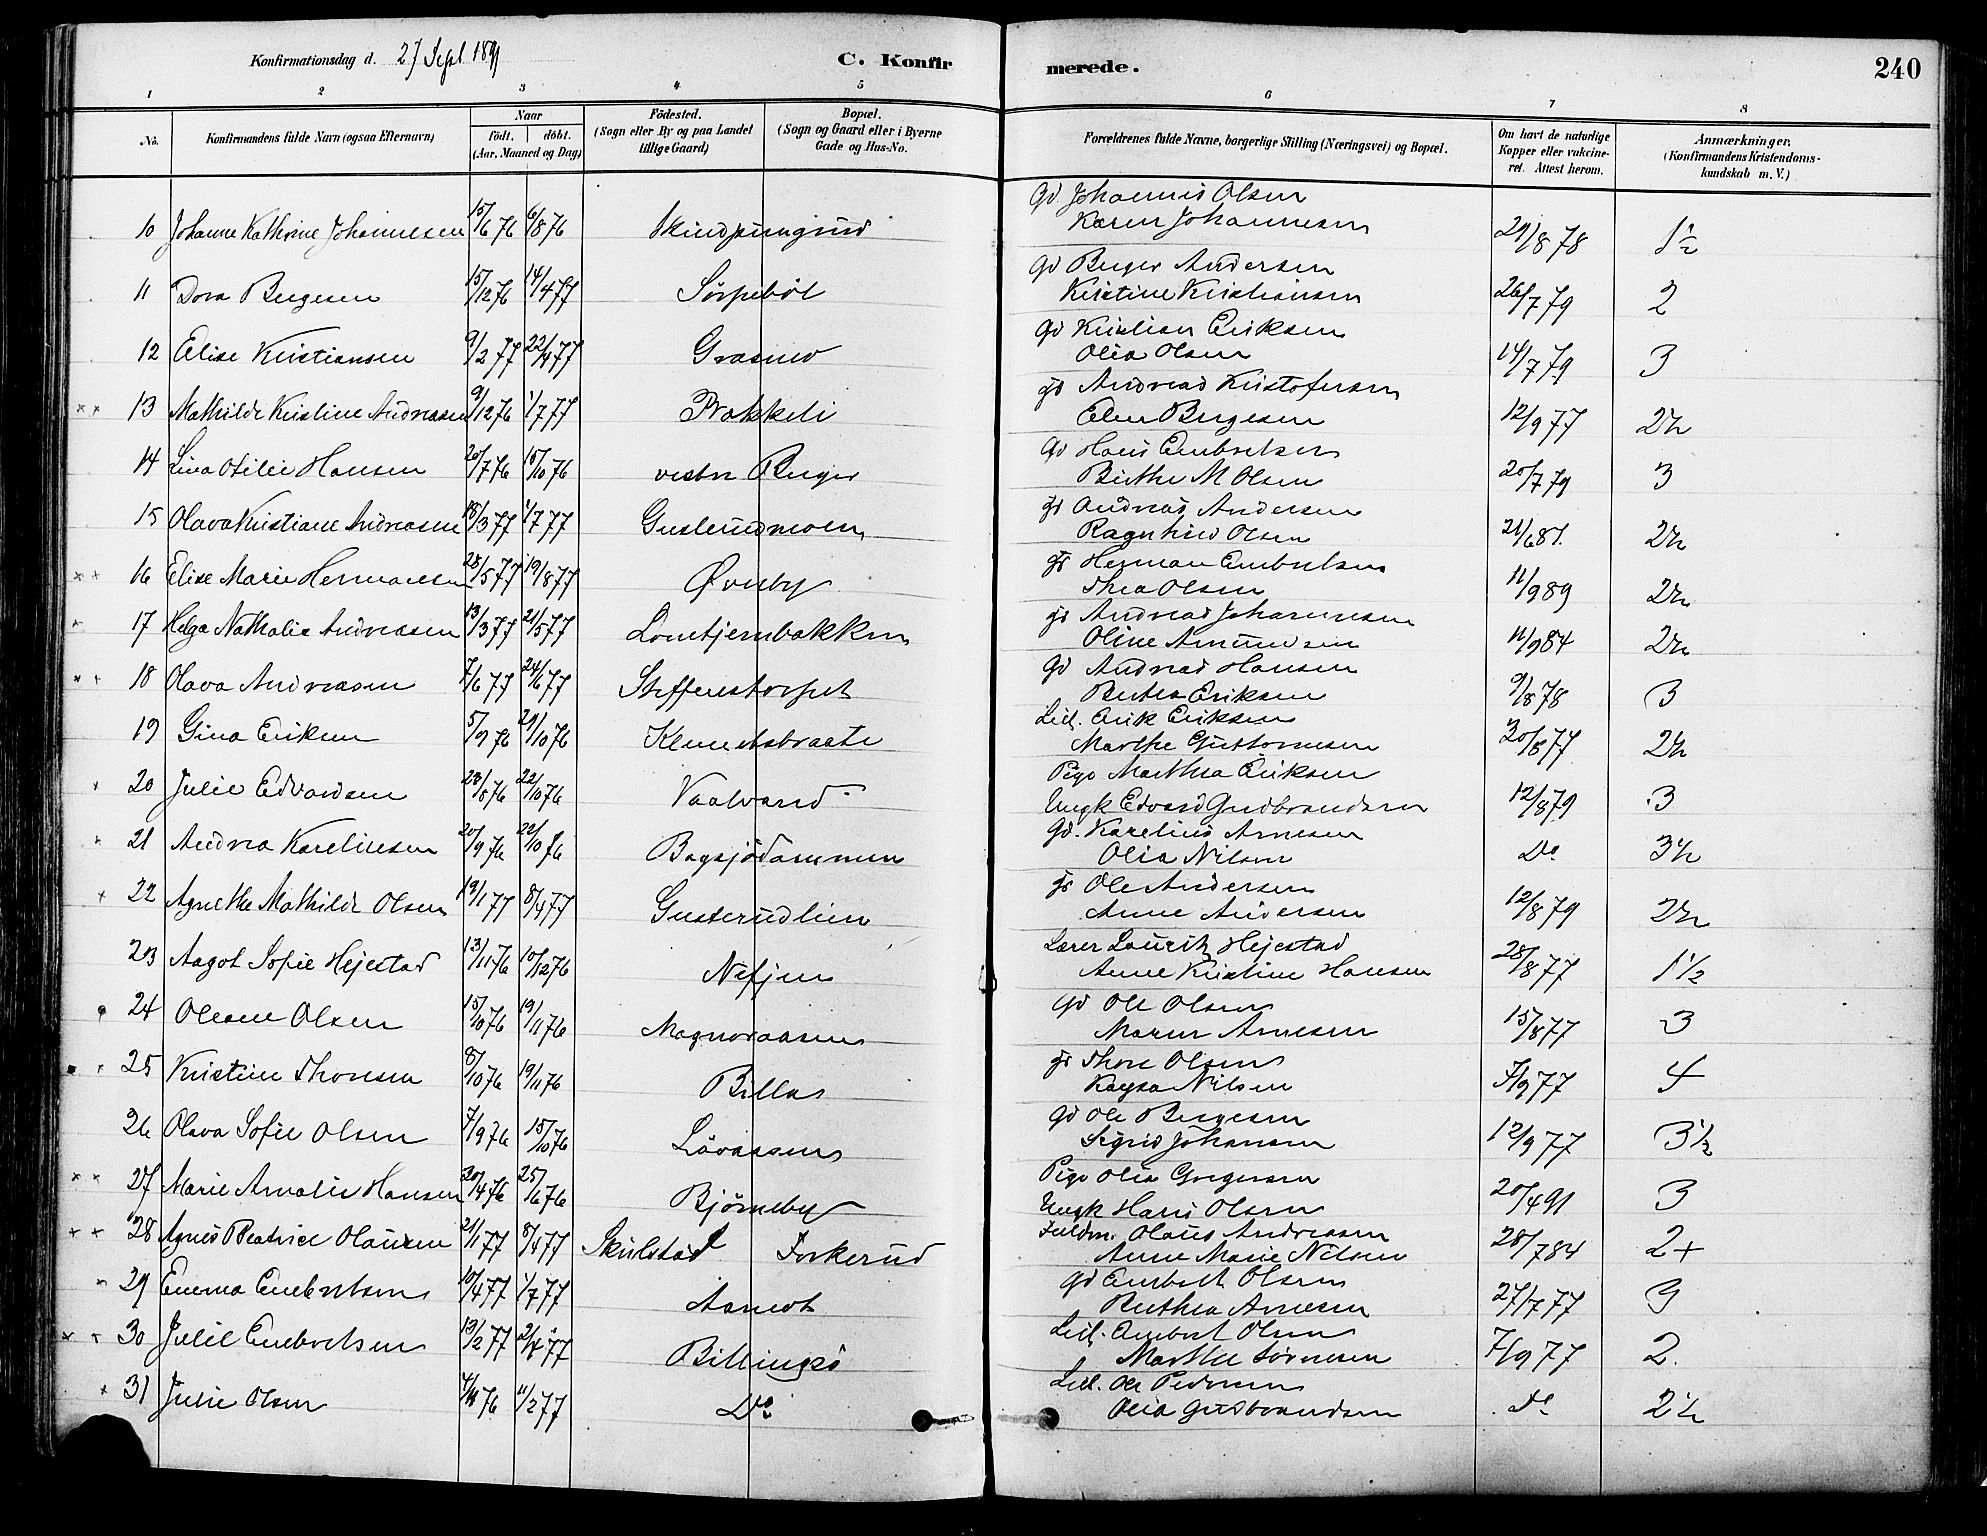 Konfirmationsdag d. 27 Sept 1891 C. Konfirmerede. 240
1 2 3 4 5 6 7 8
No. Konfirmandens fulde Navn (ogsaa Efternavn) Naar födt. döbt. (Aar, Maaned og Dag) Födested. (Sogn eller By og paa Landet tillige Gaard) Bopæl. (Sogn og Gaard eller i Byerne Gade og Hus-No. Forældrenes fulde Navne, borgerlige Stilling (Næringsvei) og Bopæl. Om havt de naturlige Kopper eller vakcineret. Attest herom. Anmærkninger. (Konfirmandens Kristendomskundskab m. V.)
10 Johanne Kathrine Johannesen 15/6 76 6/8 76 Skindpungrud Gd Johannes Olsen
Karen Johannesen 29/8 78 1½
11 Dora Bergesen 15/12 76 14/4 77 Sörpeböl Gd Berger Andersen
Kristine Kristiansen 26/7 79 2
12 Elise Kristiansen 9/2 77 22/4 77 Grasmo Gd Kristian Eriksen
Olia Olsen 14/7 79 3
13 Mathilde Kristine Andreasen 9/12 76 1/7 77 Prakkeli Gd Andreas Kristofersen
Elen Bergesen 12/9 77 2½
14 Lina Otilie Hansen 20/7 76 15/10 76 vestre Berger Gd Hans Embretsen
Birthe M Olsen 20/7 79 3
15 Olava Kristiane Andreasen 18/3 77 1/7 77 Gusterudmoen Gs Andreas Andersen
Ragnhild Olsen 21/6 81. 2½
16 Elise Marie Hermansen 28/5 77 19/8 77 Øvreby Gs Herman Embretsen
Thea Olsen 11/9 89 2½
17 Helga Nathalie Andreasen 13/3 77 21/5 77 Lomtjernbakken Gs Andreas Johannesen
Oline Amundsen 11/9 84 2½
18 Olava Andreasen 7/6 77 24/6 77 Steffenstorpet Gd Andreas Hansen
Berthea Eriksen 9/8 78 3
19 Gina Eriksen 5/9 76 29/10 76 Klemetsbraate Leil. Erik Eriksen
Marthe Guttormsen 20/8 77 2½
20 Julie Edvardsen 23/8 76 22/10 76 Vaalvand Pige Marthea Eriksen
Ungk Edvard Gudbrandsen 12/8 79 3
21 Andrea Karelinsen 20/9 76 22/10 76 Bogsjödammen Gd. Karelius Arnesen
Olia Nilsen Do 3½
22 Agnethe Mathilde Olsen 19/1 77 8/4 77 Gusterudlien Gs Ole Andersen
Anne Andersen 12/8 79 2½
23 Aagot Sofie Hejestad 13/11 76 10/12 76 Lærer Lauritz Hejestad
Anne Kristine Hansen 28/8 77 1½
24 Oleane Olsen 15/10 76 19/11 76 Magnoraasen Gd Ole Olsen
Maren Arnesen 15/8 77 3
25 Kristine Thoresen 8/10 76 19/11 76 Billa Gs Thore Olsen
Kaysa Nilsen 7/9 77 4
26 Olava Sofie Olsen 7/9 76 15/10 76 Lövaasen Gd Ole Bergesen
Sigrid Johansen 12/9 77 3½
27 Marie Amalie Hansen 30/4 76 25/6 76 Björneby Pige Olia Gregersen
Ungk Hans Olsen 20/4 91 3
28 Agnes Beatrice Olausen 21/1 77 8/4 77 Skulstad Torkerud Olaus Andreasen
Anne Marie Nilsen 28/7 84 2+
29 Emma Embretsen 10/4 77 1/7 77 Aamot Gd Embret Olsen
Berthea Arnesen 27/7 77 3
30 Julie Embretsen 13/2 77 2/4 77 Billingsö Leil. Embret Olsen
Marthe Sörensen 7/9 77 2.
31 Julie Olsen 4/11 76 11/2 77 Do Leil. Ole Pedersen
Olia Gudbrandsen Do 2½